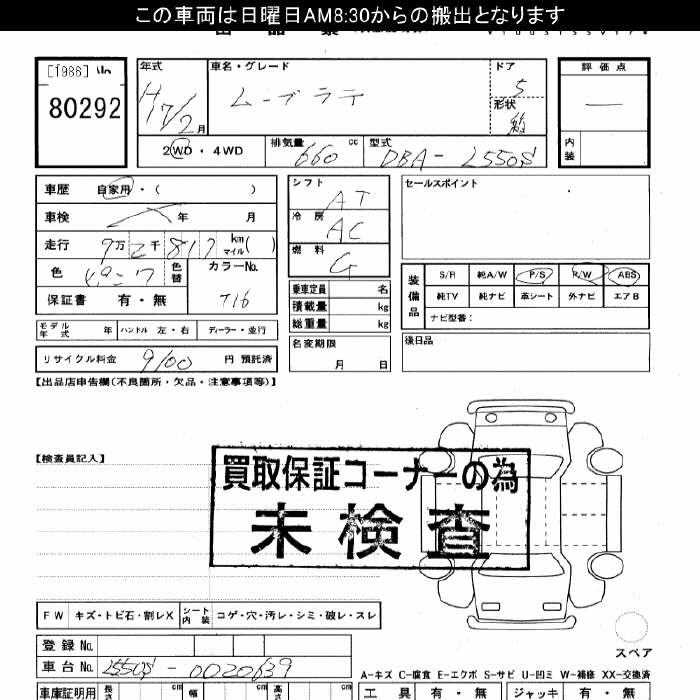 この車両は日曜日AM8:30からの搬出となります
[1986]
80292
年式
H17/2月
車名・グレード
ムーブラテ
ドア
5
形状
箱
評価点
—
内装
2WD・4WD
排気量
660 cc
型式
DBA-L550S
車歴 自家用・( )
車検 年 月
走行 9万2千817 km マイル( )
色 ピンク 色替
カラーNo.
T16
保証書 有・無
モデル年式 年 ハンドル 左・右 ディーラー・並行
リサイクル料金 9100 円 預託済
シフト
AT
冷房
AC
燃料
G
乗車定員 名
積載量 kg
総重量 kg
名変期限
月 日
セールスポイント
装備品
S/R 純A/W P/S P/W ABS
純TV 純ナビ 革シート 外ナビ エアB
ナビ型番:
後日品
【出品店申告欄(不良箇所・欠品・注意事項等)】
【検査員記入】
買取保証コーナーの為
未検査
FW キズ・トビ石・割レX シート内装 コゲ・穴・汚レ・シミ・破レ・スレ
登録No.
車台No. L550S-0020639
スペア
A-キズ C-腐食 E-エクボ S-サビ U-凹ミ W-補修 XX-交換済
車庫証明用 長さ cm 幅 cm 高さ cm
工具 有・無 ジャッキ 有・無